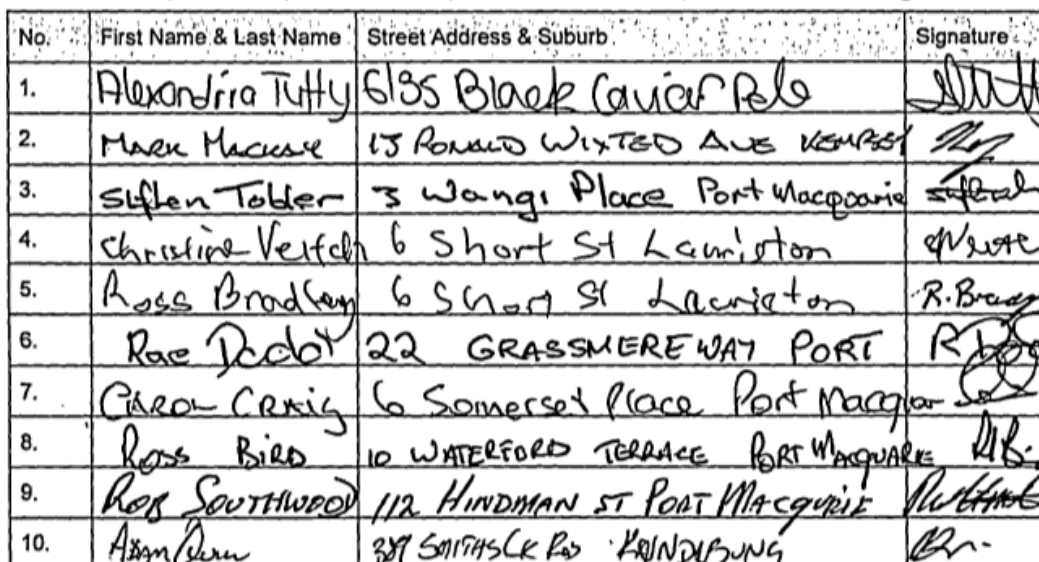 No. First Name & Last Name Street Address & Suburb Signature
1. Alexandria Tutty 6/35 Black Caviar Pde
2. MARK MACKAY 13 RONALD WIXTED AVE KEMPSEY
3. Steffen Tobler 3 Wangi Place Port Macquarie
4. Christine Veitch 6 Short St Lauriston
5. Ross Bradley 6 Short St Lauriston R. Bradley
6. Rae 22 GRASSMERE WAY PORT
7. CAROL CRAIG 6 Somerset Place Port Macquar
8. Ross BIRD 10 WATERFORD TERRACE PORT MACQUARIE
9. ROB SOUTHWOOD 112 HINDMAN ST PORT MACQURIE
10. Adam 389 SMITHS CK RD KUNDABUNG